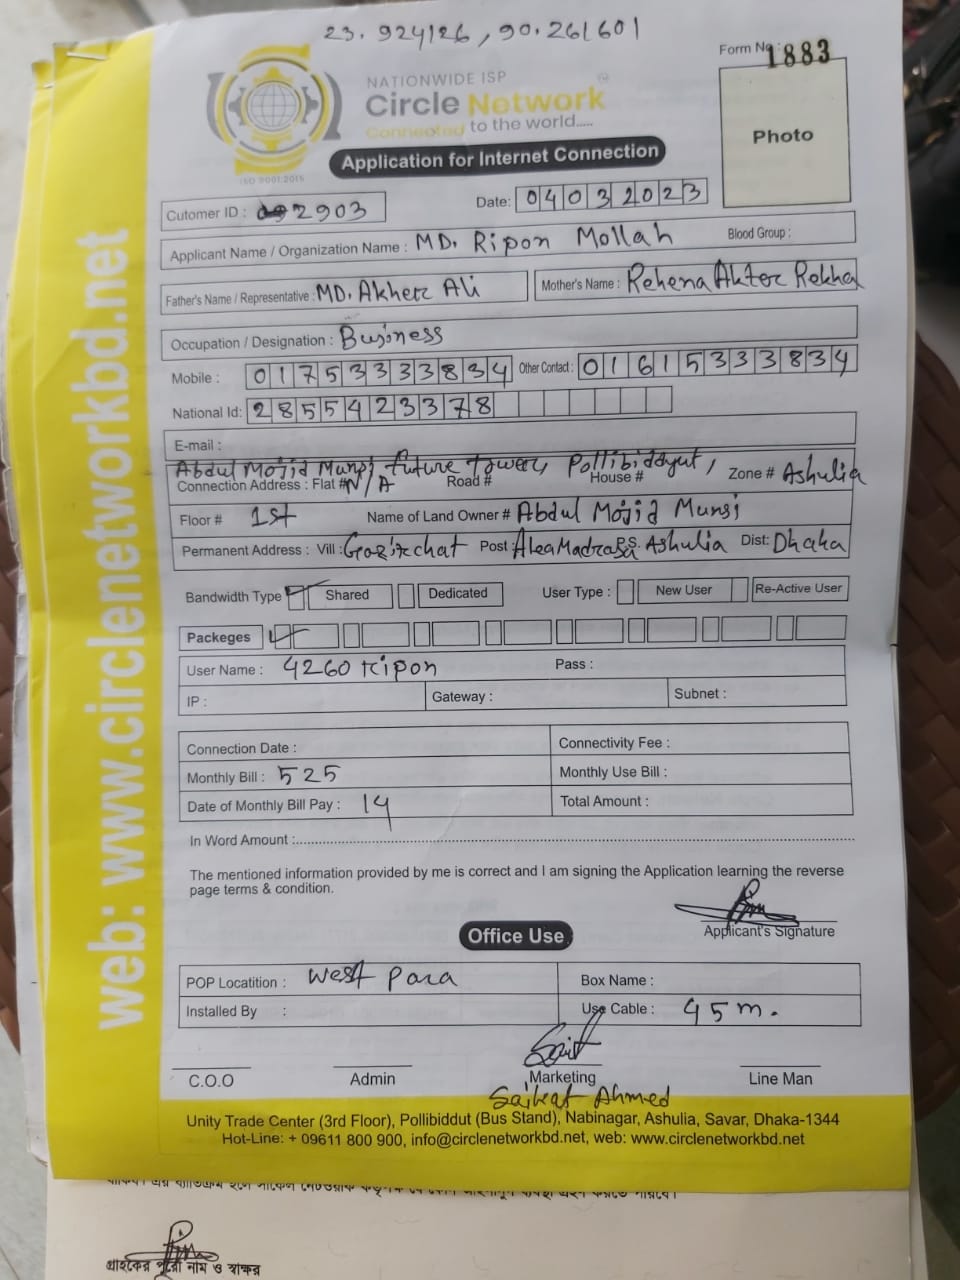 23.924126, 90.261601
Form No: 1883
NATIONWIDE ISP
Circle Network
Connected to the world.....
ISO 9001:2015
Photo
Application for Internet Connection
Cutomer ID : 2903
Date: 04032023
Applicant Name / Organization Name : MD. Ripon Mollah Blood Group :
Father's Name / Representative : MD. Akher Ali Mother's Name : Rehena Akter Rekha
Occupation / Designation : Business
Mobile : 01753333834 Other Contact : 01615333834
National Id: 2855423378
E-mail :
Abdul Mojid Munsi, future tower, Pollibiddyut,
Connection Address : Flat # N/A Road # House # Zone # Ashulia
Floor # 1st Name of Land Owner # Abdul Mojid Munsi
Permanent Address : Vill : Gazirchat Post : Alea Madrasa P.S. Ashulia Dist: Dhaka
Bandwidth Type Shared Dedicated User Type : New User Re-Active User
Packeges
User Name : 4260 ripon Pass :
IP : Gateway : Subnet :
Connection Date : Connectivity Fee :
Monthly Bill : 525 Monthly Use Bill :
Date of Monthly Bill Pay : 14 Total Amount :
In Word Amount :
The mentioned information provided by me is correct and I am signing the Application learning the reverse
page terms & condition.
Applicant's Signature
Office Use
POP Locatition : West Para Box Name :
Installed By : Use Cable : 45 m.
C.O.O Admin Marketing Line Man
Saikat Ahmed
Unity Trade Center (3rd Floor), Pollibiddut (Bus Stand), Nabinagar, Ashulia, Savar, Dhaka-1344
Hot-Line: + 09611 800 900, info@circlenetworkbd.net, web: www.circlenetworkbd.net
web: www.circlenetworkbd.net
গ্রাহকের পুরো নাম ও স্বাক্ষর